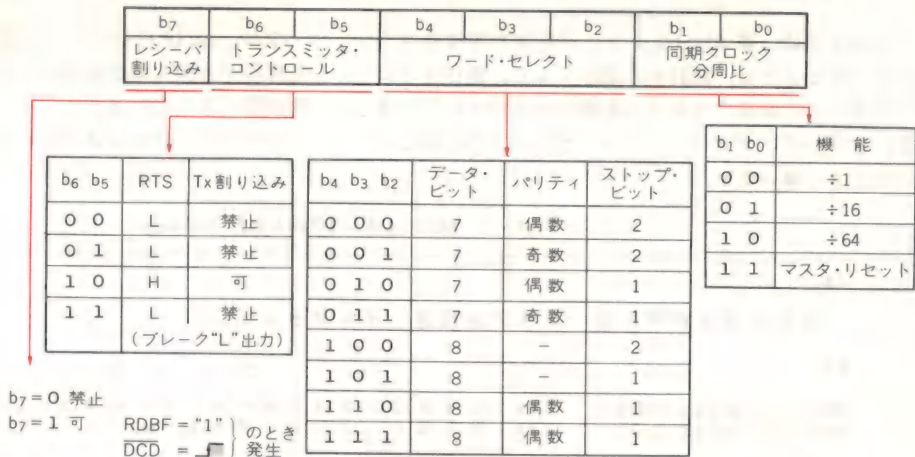 b7 b6 b5 b4 b3 b2 b1 b0
レシーバ割り込み
トランスミッタ・コントロール
ワード・セレクト
同期クロック分周比
b6 b5 RTS Tx割り込み
0 0 L 禁止
0 1 L 禁止
1 0 H 可
1 1 L 禁止
(ブレーク"L"出力)
b4 b3 b2 データ・ビット パリティ ストップ・ビット
0 0 0 7 偶数 2
0 0 1 7 奇数 2
0 1 0 7 偶数 1
0 1 1 7 奇数 1
1 0 0 8 − 2
1 0 1 8 − 1
1 1 0 8 偶数
1 1 1 8 偶数 1
b1 b0 機能
0 0 ÷1
0 1 ÷16
1 0 ÷64
1 1 マスタ・リセット
b7=0 禁止
b7=1 可
RDBF="1"
DCD =
のとき発生